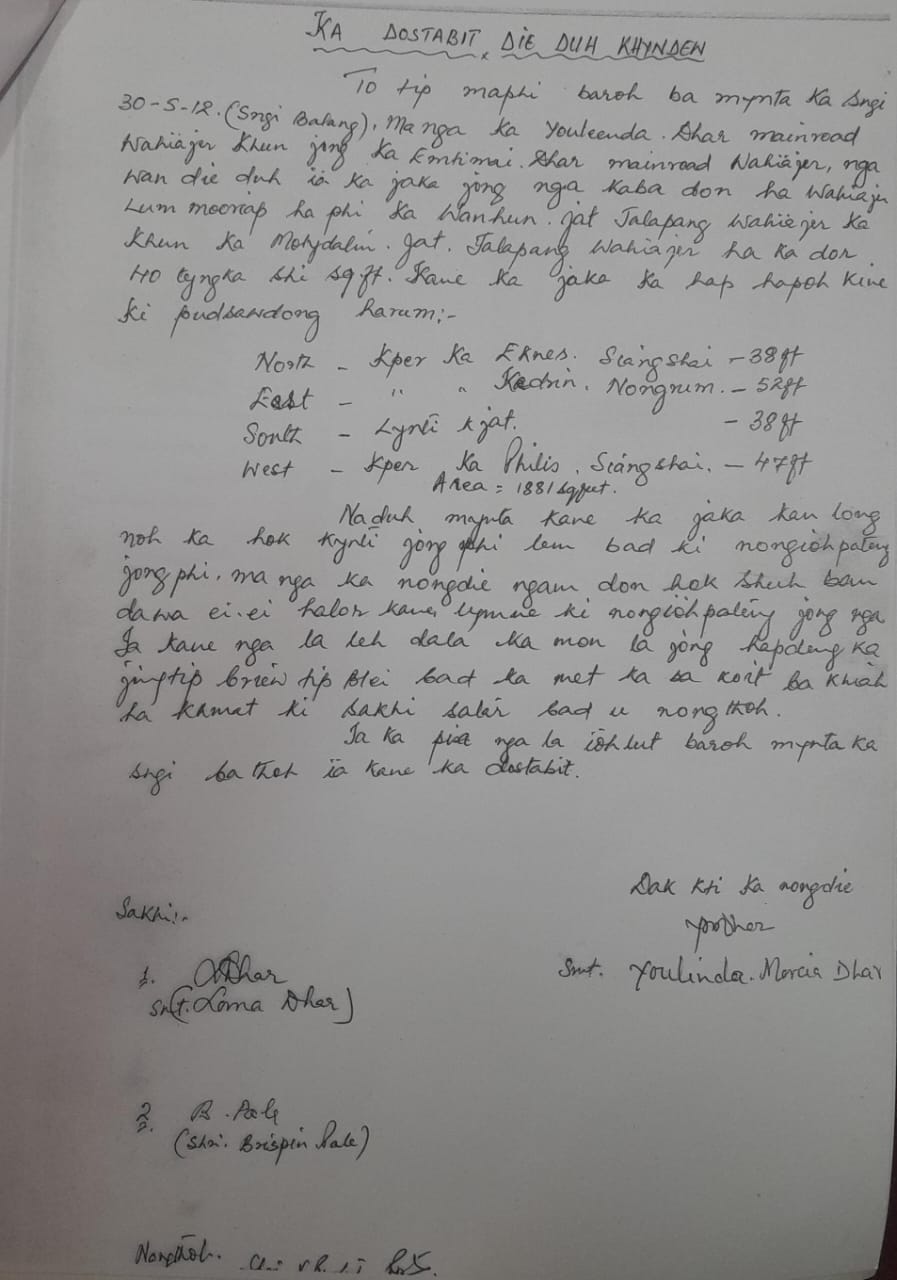 KA DOSTABIT, DIE DUH KHYNDEW
To tip maphi baroh ba mynta ka sngi
30-5-12. (Sngi Balang), Ma nga ka Youleenda. Dhar mainroad
Wahiäjer Khun jong Ka Emtimai. Dhar mainroad Wahiäjer, nga
wan die duh ïa ka jaka jong nga kaba don ha Wahiajer
Lum mooriap ha phi ka Wanhun. Jat Talapang Wahiäjer ka
Khun ka Molydalin. Jat. Talapang Wahiäjer ha ka dor
40 tyngka shi sqft. Kane ka jaka ka hap hapoh kine
ki pudsawdong harum:-
North - Kper Ka Eknes. Siángshai - 38ft
East - " " Kedrin. Nongrum. - 52ft
South - Lynti k jat. - 38ft
West - Kper Ka Philis. Siángshai. - 47ft
Area = 1881 sqfeet.
Naduh mynta kane ka jaka kan long
noh ka hok kynti jong phi lem bad ki nongiohpateng
jong phi, ma nga ka nongdie ngam don hok shuh ban
dawa ei-ei halor kane, lymne ki nongïohpateng jong nga
Ia kane nga la leh dala ka mon la jong hapdeng ka
jingtip briew tip Blei bad ka met ka sa koit ba khiah
ha khmat ki sakhi salár bad u nongthoh.
Ia ka pisa nga la ïoh lut baroh mynta ka
sngi ba thoh ïa kane ka dostabit.
Dak kti ka nongdie
Sakhi:-
Smt. Youlinda. Mercia Dhar
1. Dhar
Smt. (Lorna Dhar)
2. B. Pale
(Shri. Brispin Pale)
Nongthoh.